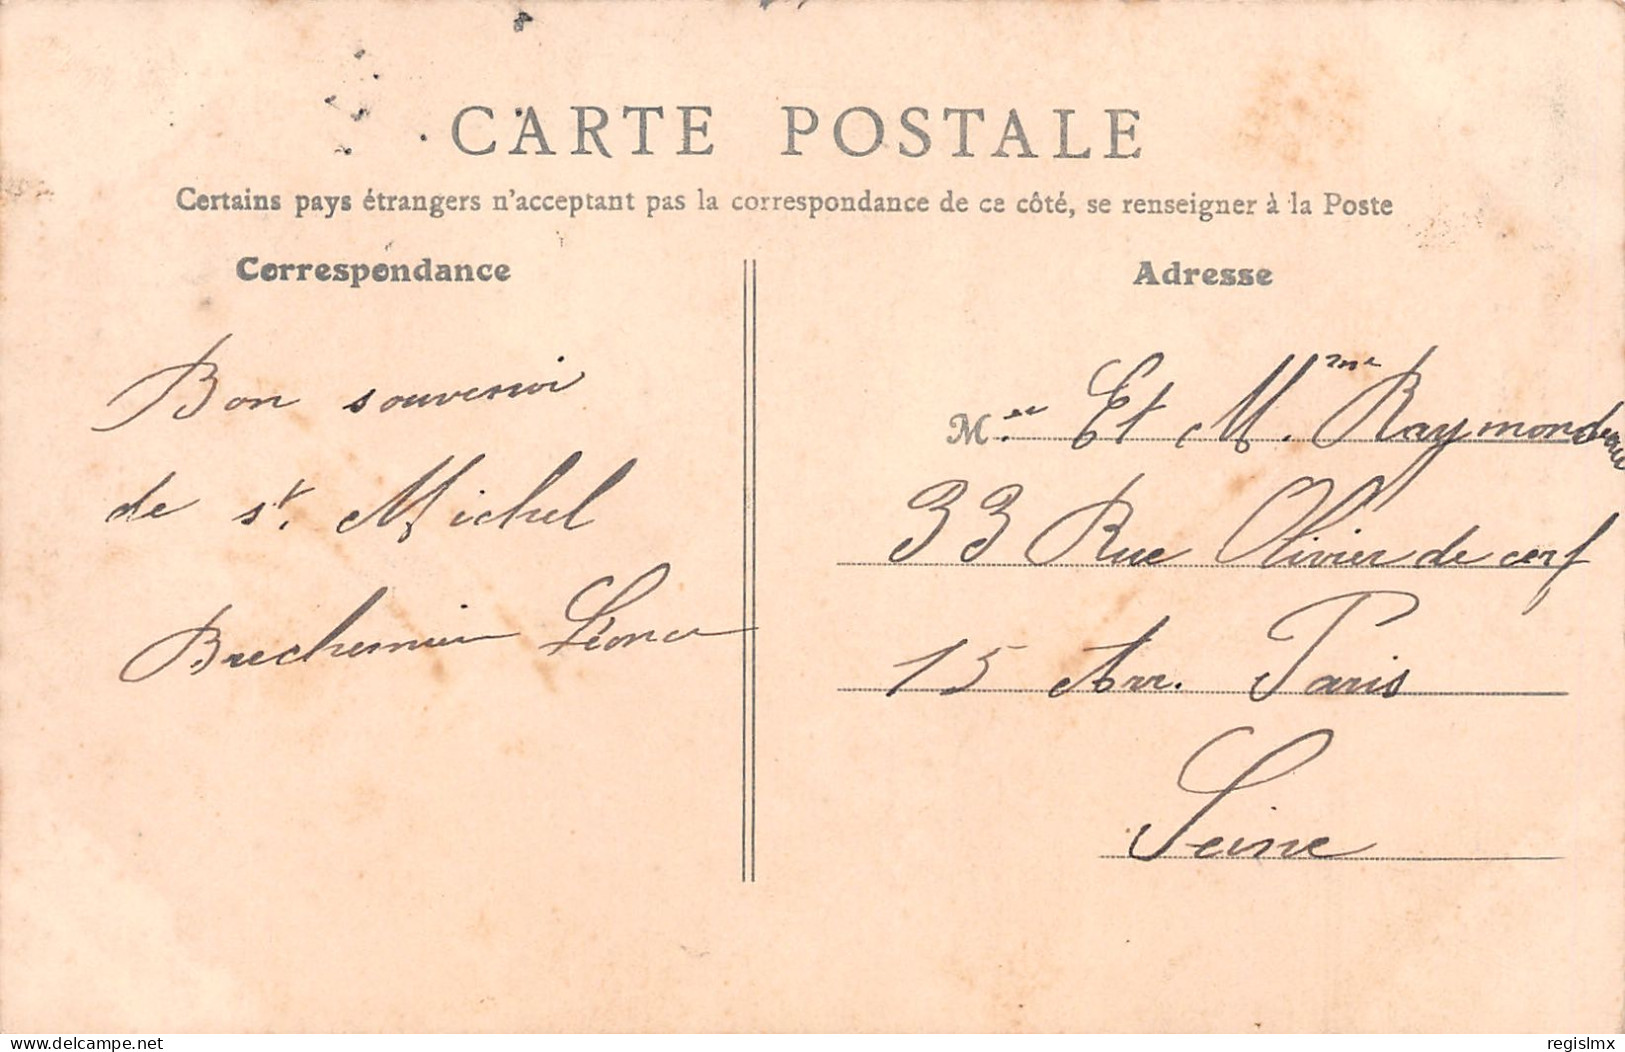 CARTE POSTALE
Certains pays étrangers n'acceptant pas la correspondance de ce côté, se renseigner à la Poste
Correspondance
Bon souvenir
de st. Michel
Brechemier Léonce
Adresse
M. er Et Mme Raymondeau
33 Rue Olivier de cerf
15 Arr. Paris
Seine
www.delcampe.net
regislmx